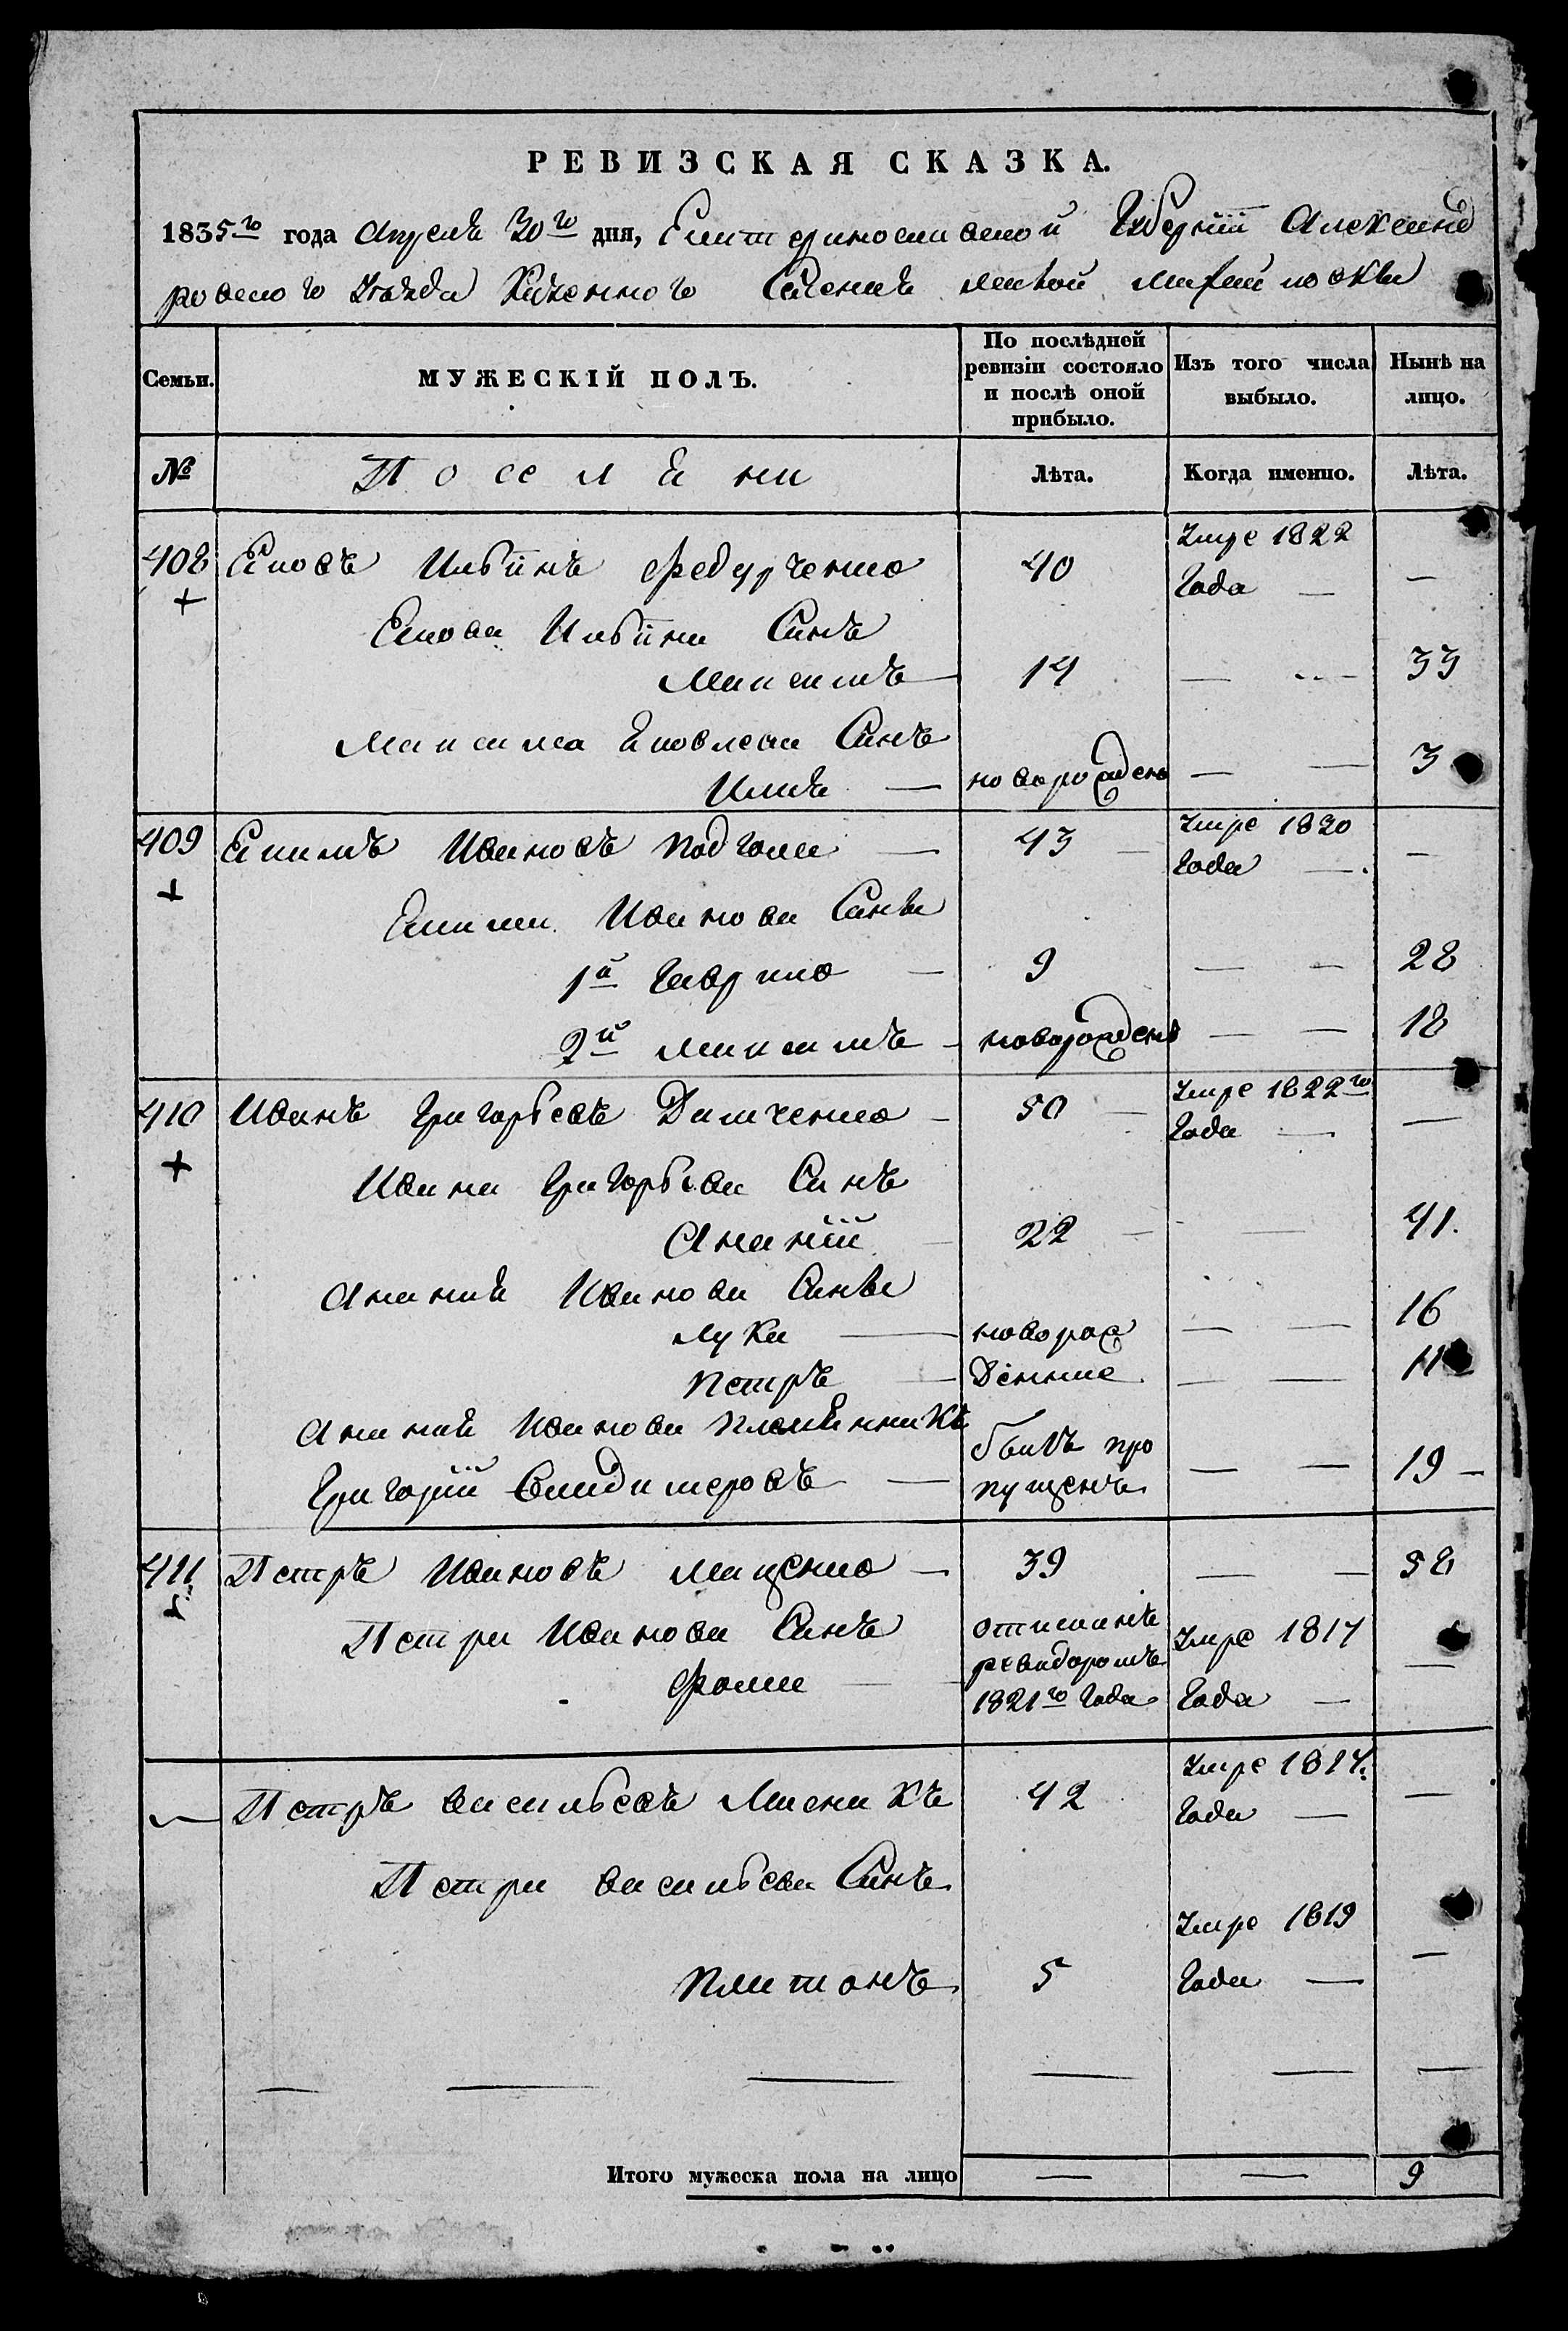 РЕВИЗСКАЯ СКАЗКА.
1835го года Апреля 30го дня, Екатеринославской Губерніи Александ
ровскаго Уезда Казеннаго Селенія малой михайловки
Семьи.
МУЖЕСКІЙ ПОЛЪ.
По послѣдней ревизіи состояло и послѣ оной прибыло.
Изъ того числа выбыло.
Нынѣ на лицо.
№
Поселяни
Лѣта.
Когда именно.
Лѣта.
408 Яковъ Ильинъ Федурченко 40 Умре 1822 Года — —
+
Якова Ильина Синъ
Максимъ — 14 — — 33
Максима Яковлева Синъ
Илия — новорожденъ — — 3
409 Якимъ Ивановъ Подгола — 43 — Умре 1830 Года — —
+
Якима Иванова Сины
1й Гаврило — 9 — — 28
2й Максимъ — новорожденъ — — 18
410 Иванъ Григорьевъ Данченко — 50 — Умре 1822го Года — —
+
Ивана Григорьева Синъ
Ананій — 22 — — 41.
Анания Иванова Сины
Лука — новорож — — 16
Петръ — денние — — 11
Анания Иванова племянникъ
Григорій Свидитеровъ — билъ про пущенъ — — 19 —
411 Петръ Ивановъ Мащенко — 39 — — 58
Петра Иванова Синъ
Фома — отисканъ ревидоромъ 1821го Года Умре 1817 Года — —
— Петръ Васильевъ 42 Умре 1817. Года — —
Петра Васильева Синъ
Платонъ 5 Умре 1819 Года — —
— — — — — —
Итого мужеска пола на лицо — — 9